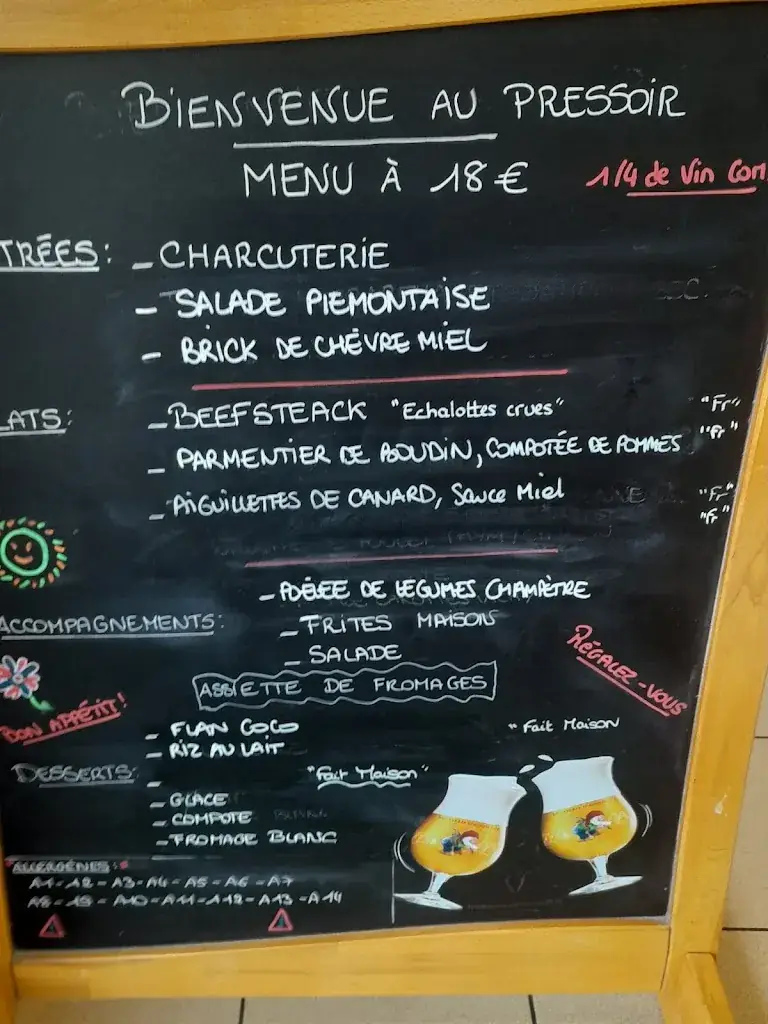 BIENVENUE AU PRESSOIR
MENU À 18 €
1/4 de Vin Com
TRÉES: - CHARCUTERIE
- SALADE PIEMONTAISE
- BRICK DE CHÈVRE MIEL
LATS: - BEEFSTEACK "Echalottes crues" "Fr"
"Fr"
- PARMENTIER DE BOUDIN, COMPOTÉE DE POMMES
- AIGUILLETTES DE CANARD, Sauce Miel "Fr"
"Fr"
- POÊLÉE DE LÉGUMES CHAMPÊTRE
ACCOMPAGNEMENTS: - FRITES MAISON
- SALADE
RÉGALEZ-VOUS
ASSIETTE DE FROMAGES
BON APPÉTIT!
- FLAN COCO " Fait Maison
- RIZ AU LAIT
DESSERTS: "Fait Maison"
- GLACE
- COMPOTE
- FROMAGE BLANC
"ALLERGÈNES:"
A1 - A2 - A3 - A4 - A5 - A6 - A7
A8 - A9 - A10 - A11 - A12 - A13 - A14